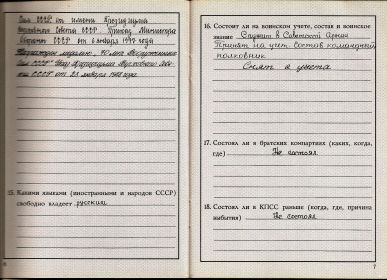 Сил СССР от имени Президиума
Верховного Совета СССР. Приказ Министра
Обороны СССР от 6 января 1947 года
медалью "70 лет Вооруженных
Сил СССР" Указ Президиума Верховного
СССР от 28 января 1988 года
15. Какими языками (иностранными и народов СССР)
свободно владеет русским
16. Состоит ли на воинском учете, состав и воинское
звание Служит в Советской Армии
Принят на учет. Состав командный
полковник
Снят с учета
17. Состоял ли в братских компартиях (каких, когда,
где) Не состоял
18. Состоял ли в КПСС раньше (когда, где, причина
выбытия) Не состоял
7